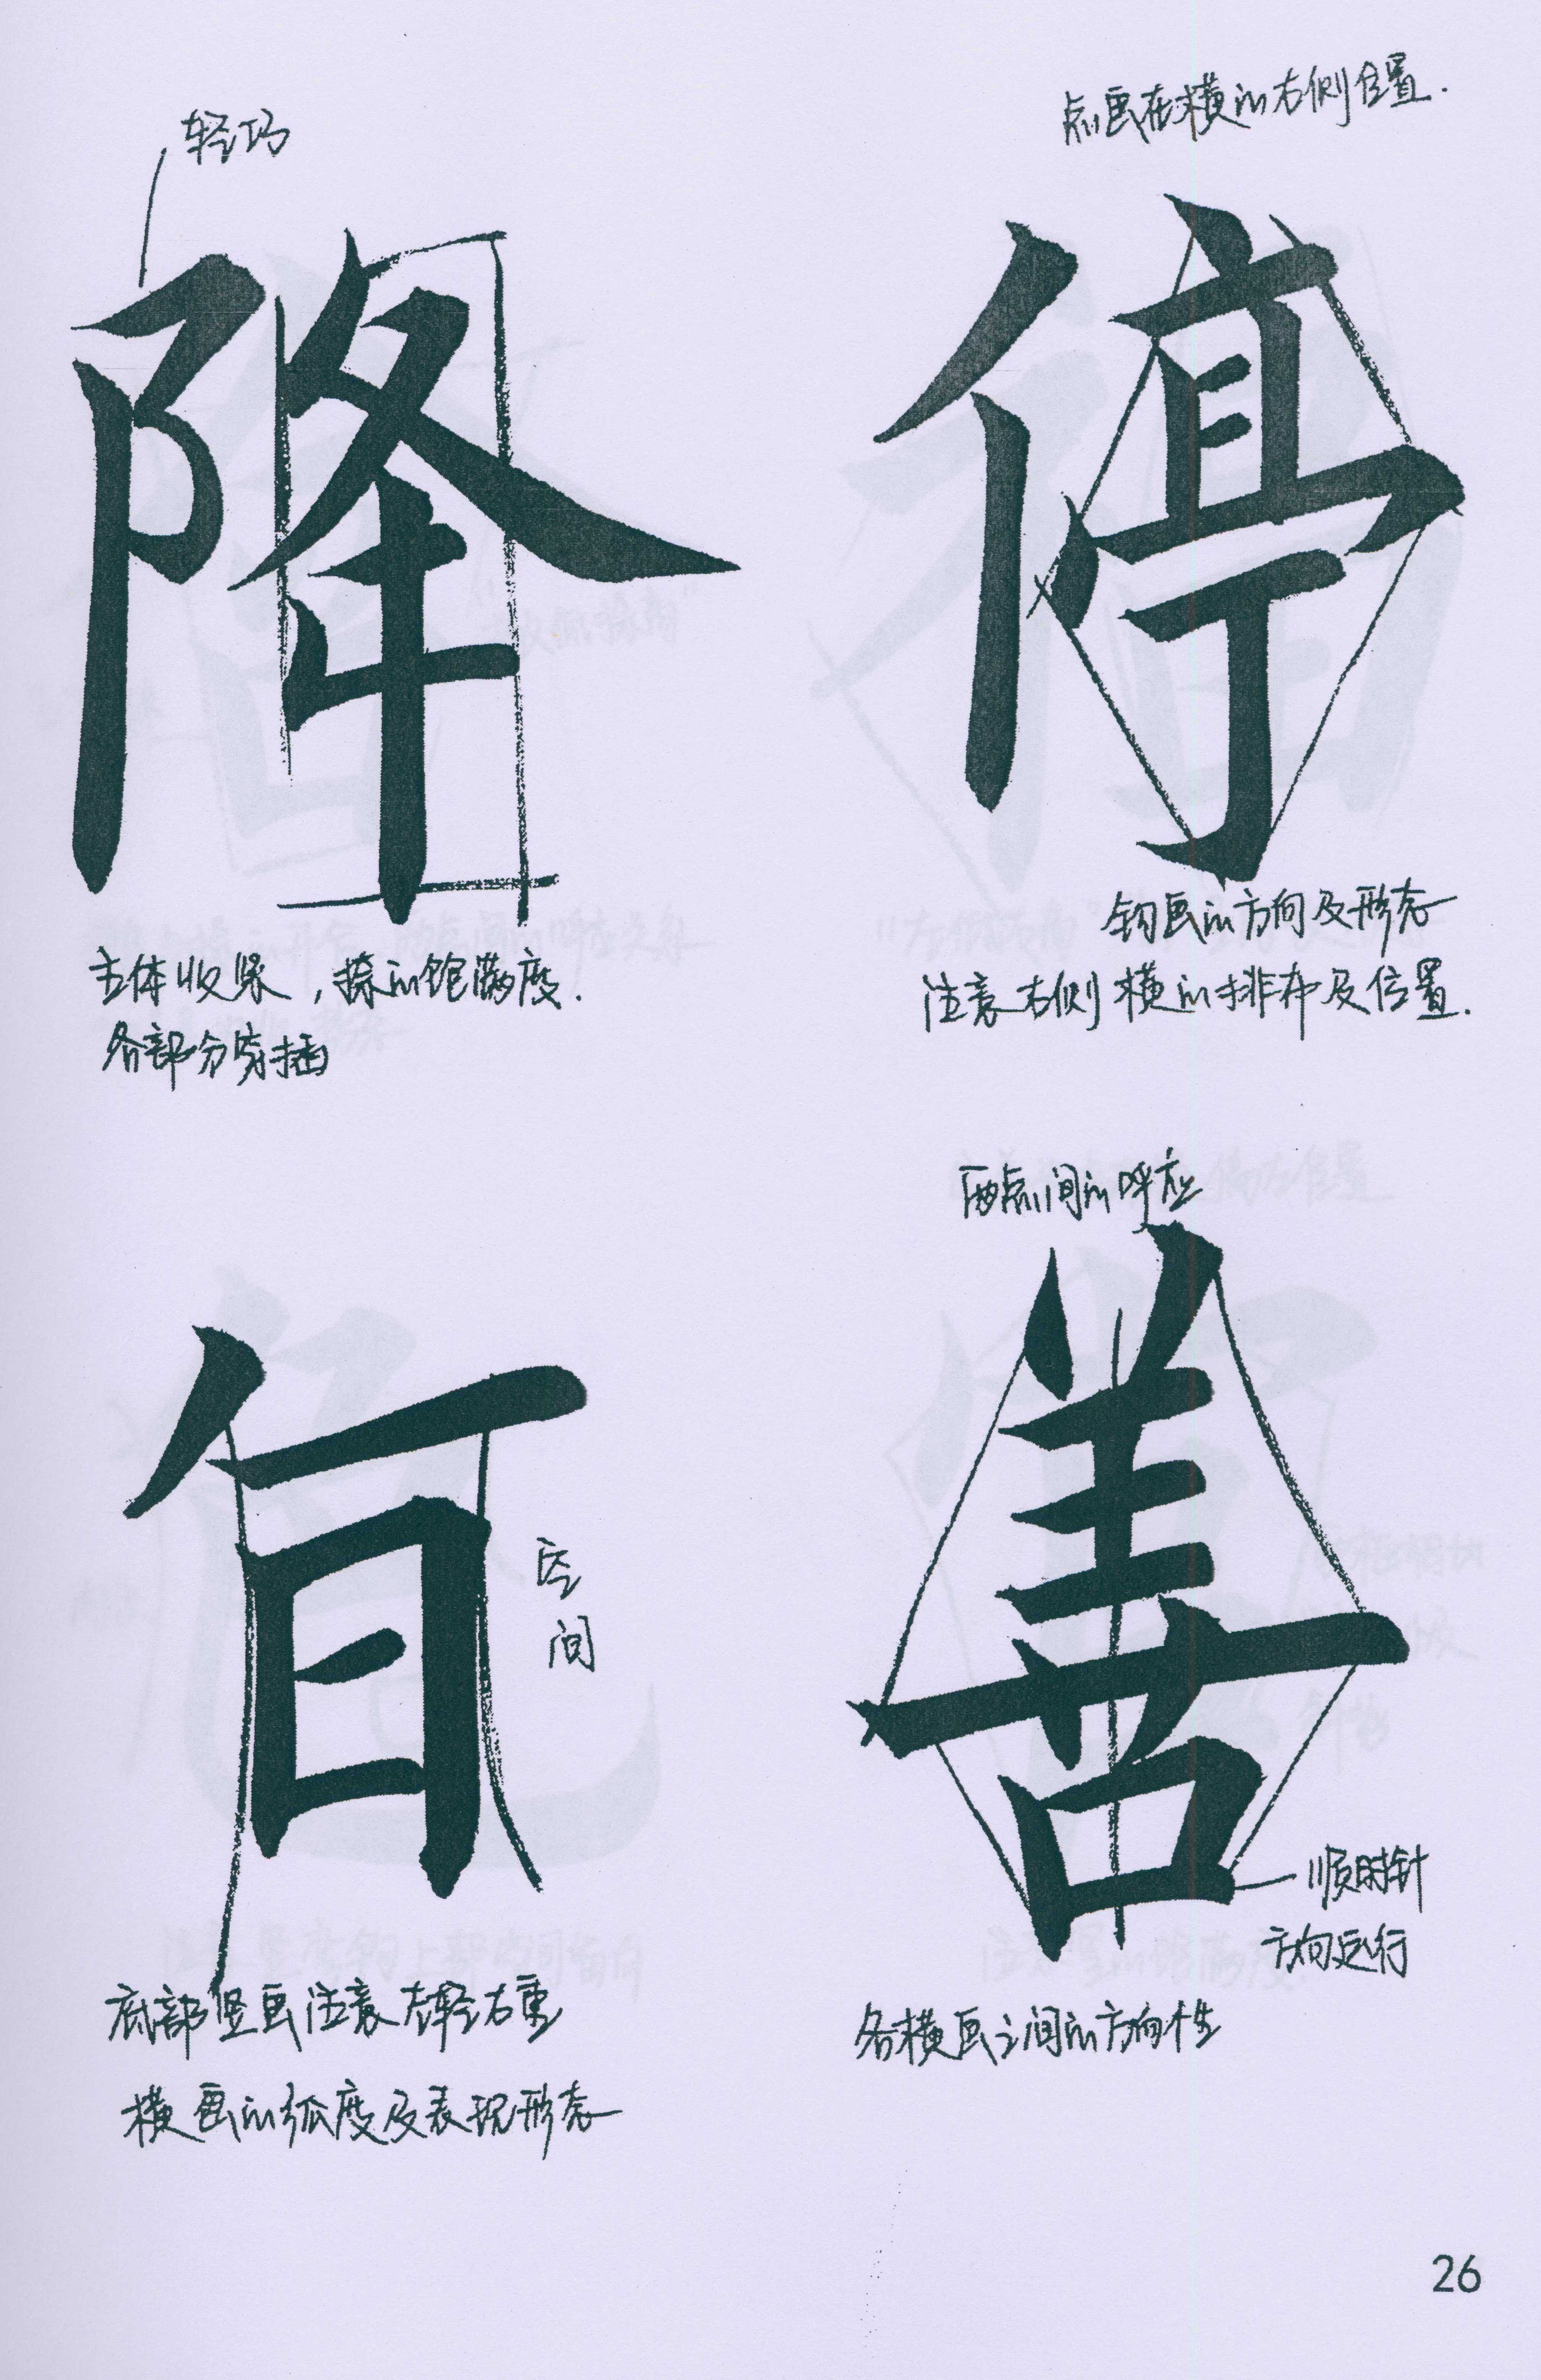 轻巧
降
主体收紧，捺的饱满度.
各部分穿插
点画在横的右侧位置.
停
钩画的方向及形态
注意右侧横的排布及位置.
空
间
底部竖画注意左轻右重
横画的弧度及表现形态
两点间的呼应
善
顺时针
方向运行
各横画之间的方向性
26